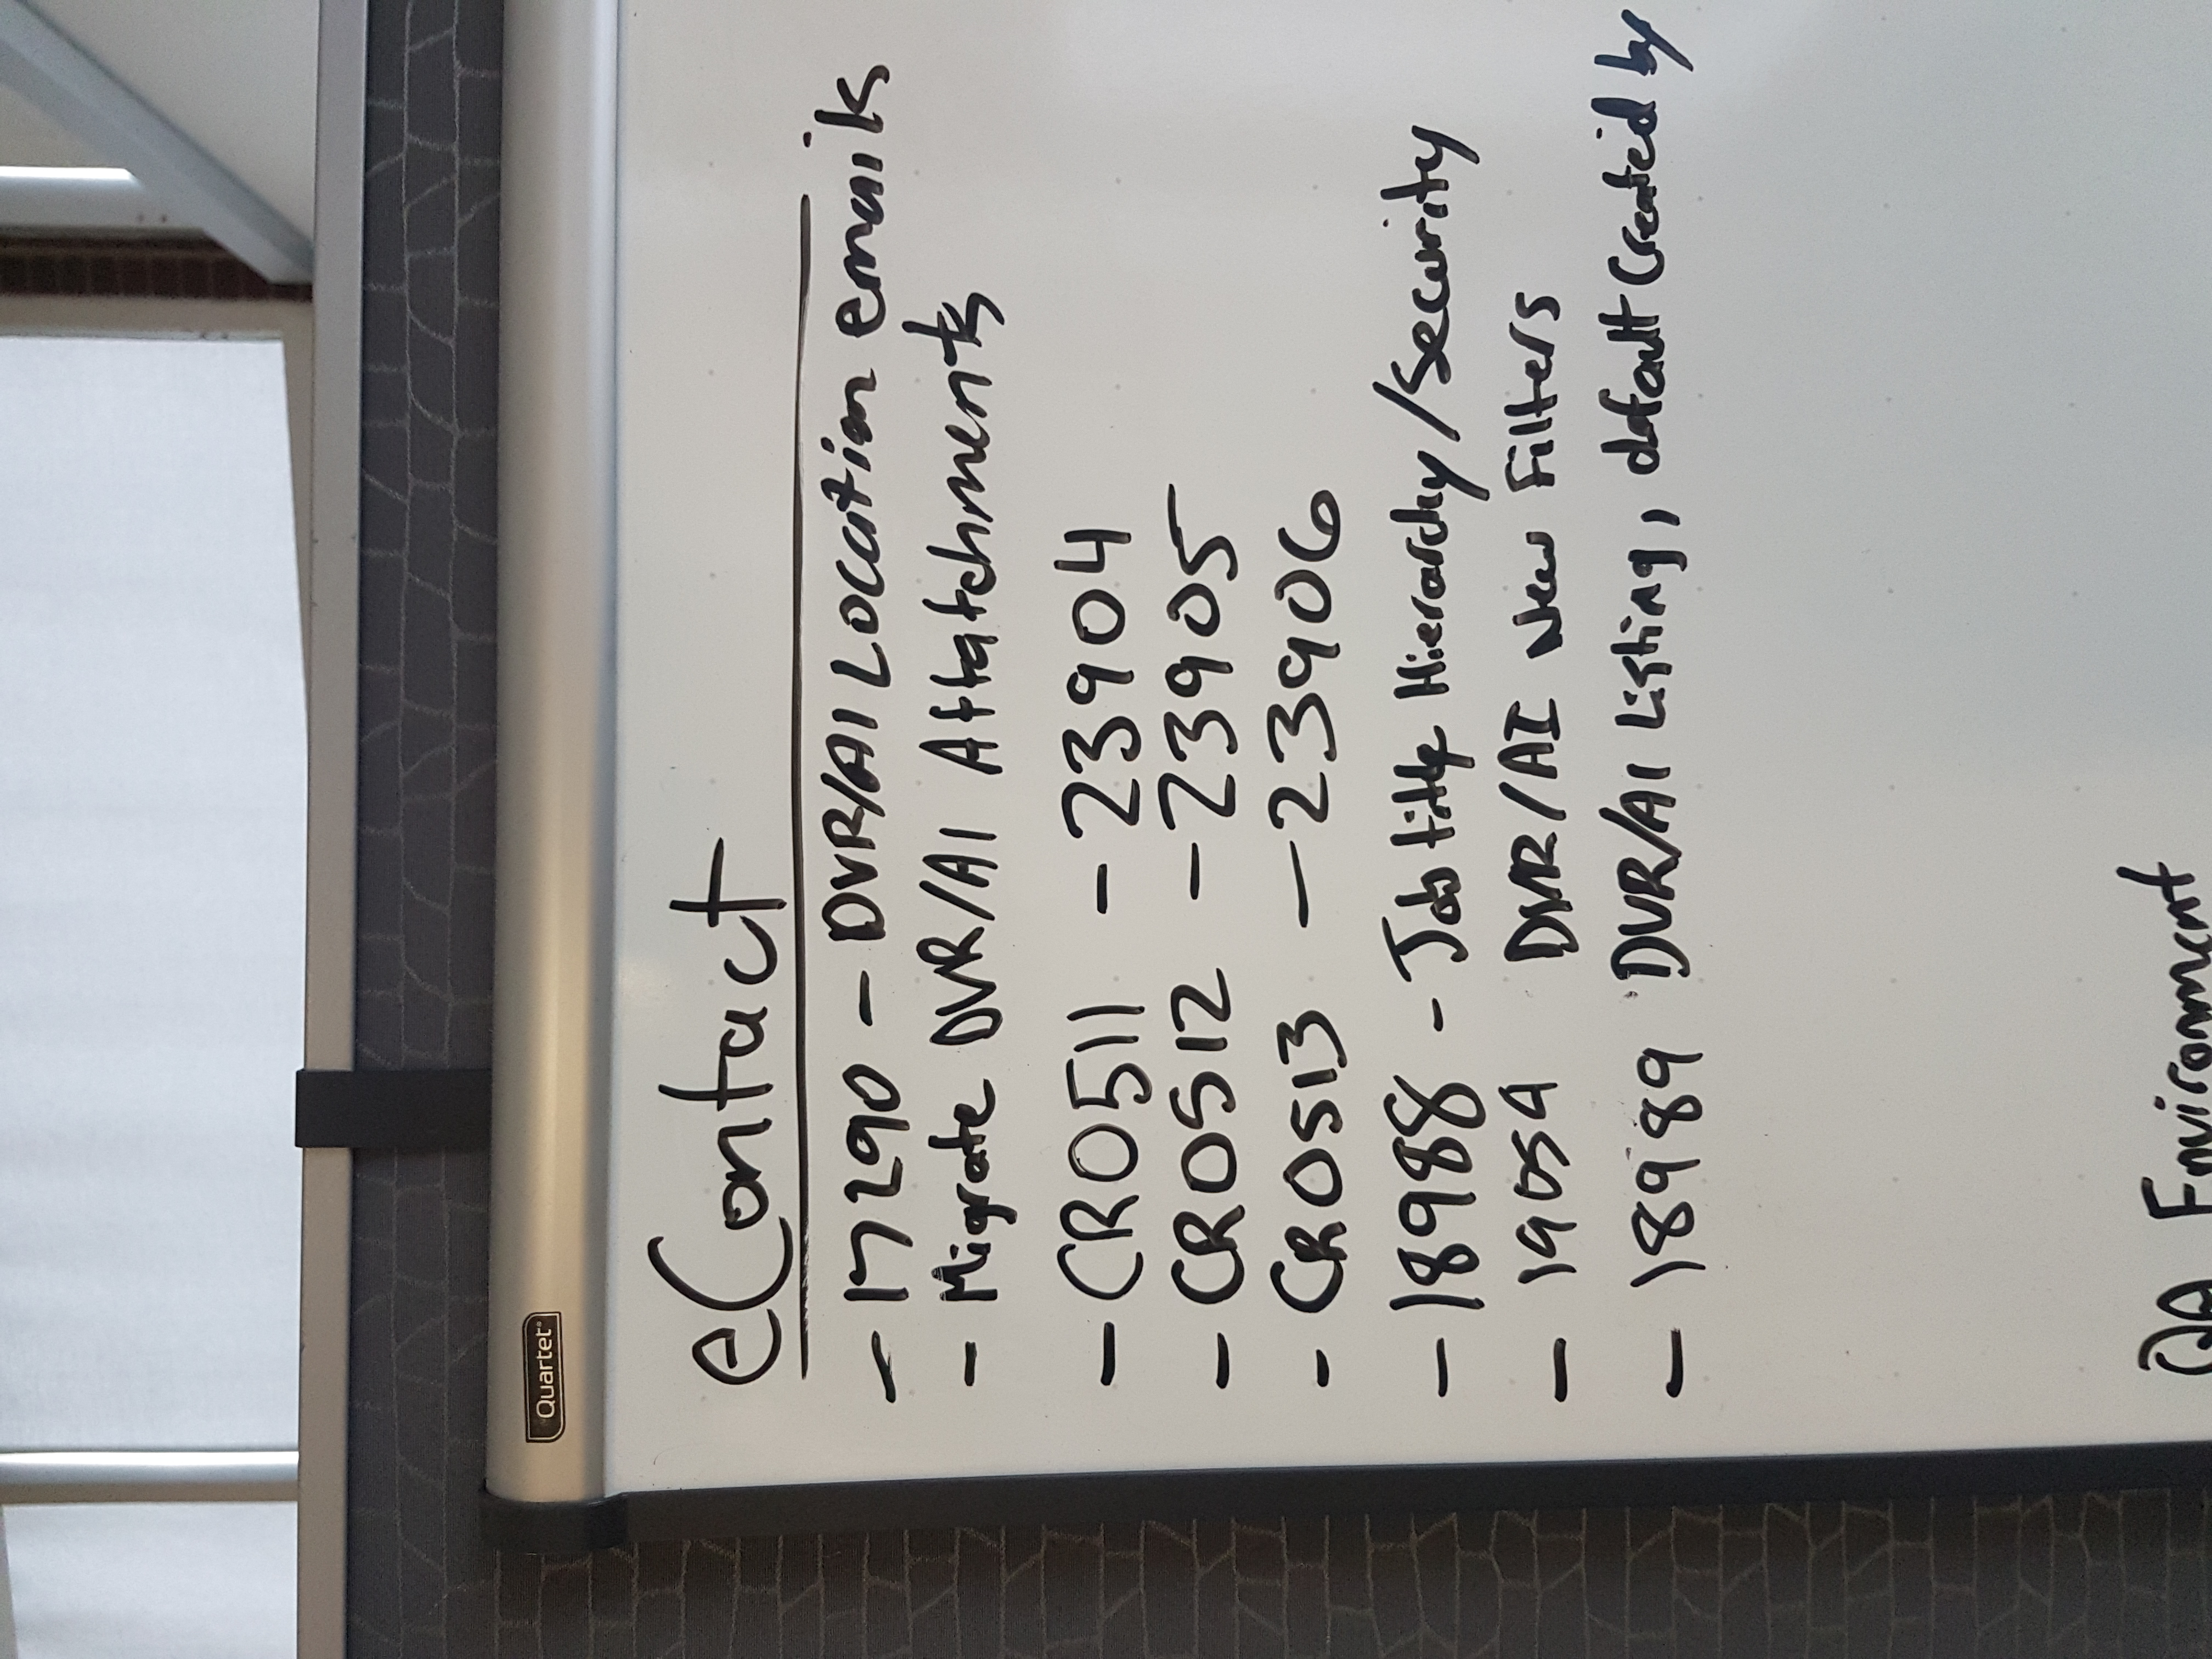 Quartet
eContact
- 17290 - DVR/AI Location emails
- Migrate DVR/AI Attatchments
- CR0511 - 23904
- CR0512 - 23905
- CR0513 - 23906
- 18988 - Job title Hierarchy/Security
- 19054 DVR/AI New Filters
- 18989 DVR/AI Listing, default Created by
QA Environment